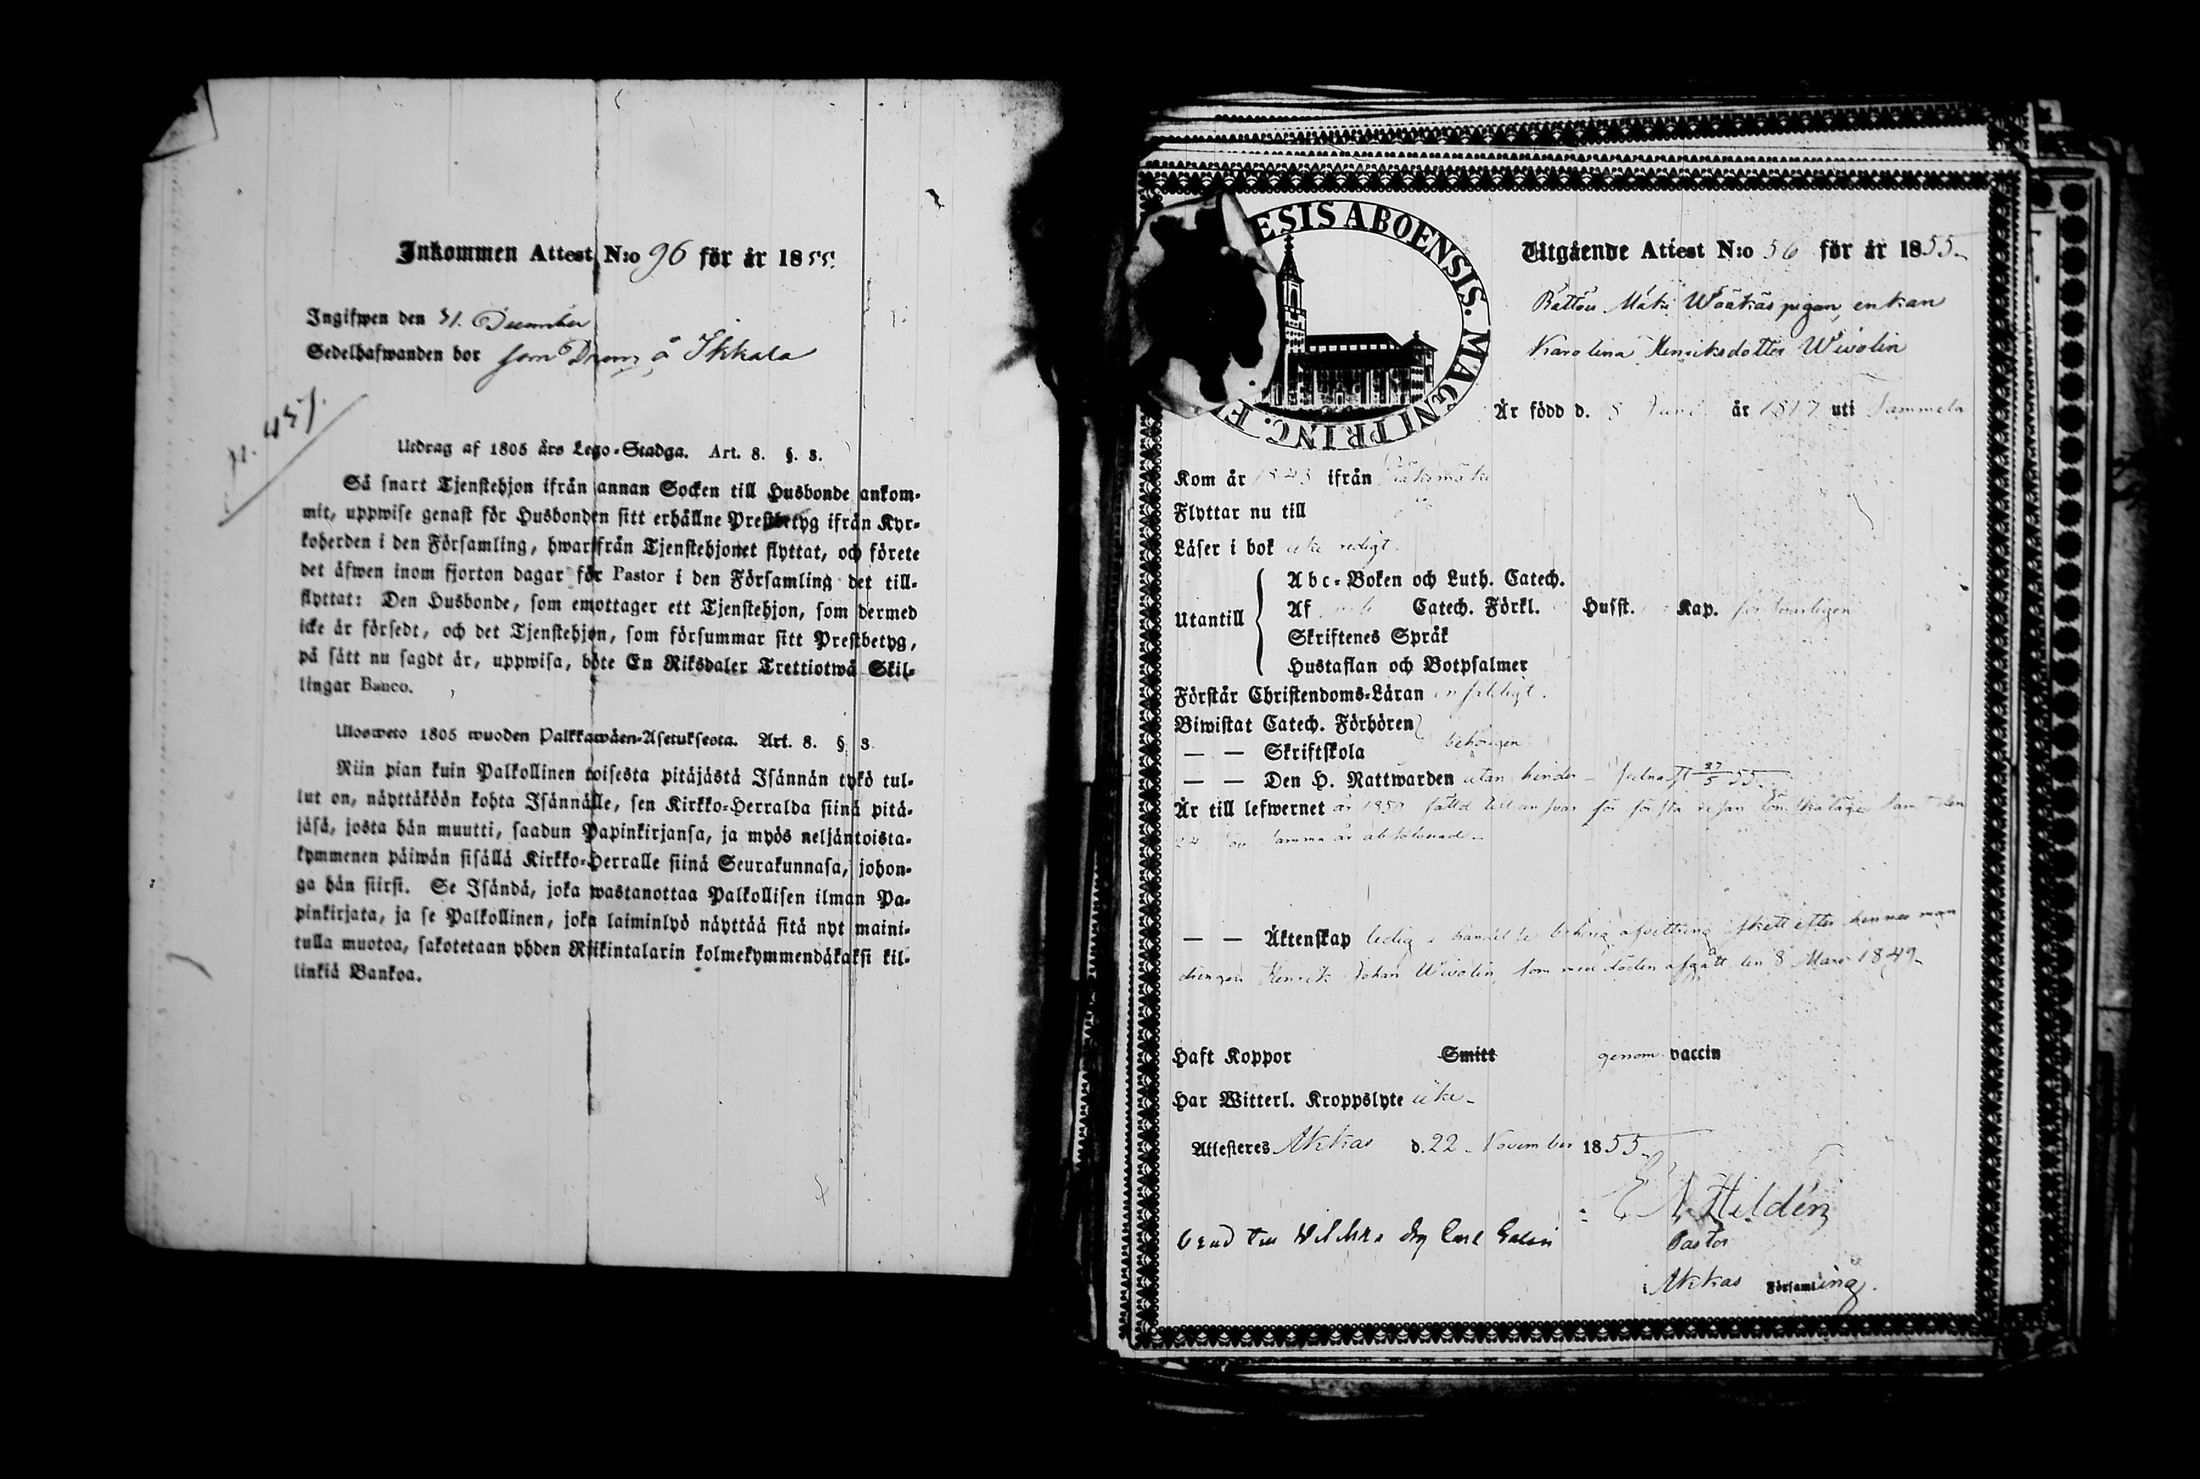 Inkommen Attest N:o 96 för år 1855.
Ingifwen den 31. December
Sedelhafwanden bor som Dräng å Ikkala
p. 457.
Utdrag af 1805 års Lego-Stadga. Art. 8. §. 3.
Så snart Tjenstehjon ifrån annan Socken till Husbonde ankom-
mit, uppwise genast för Husbonden sitt erhållne Prestbetyg ifrån Kyr-
koherden i den Församling, hwarifrån Tjenstehjonet flyttat, och förete
det äfwen inom fjorton dagar för Pastor i den Församling det till-
flyttat: Den Husbonde, som emottager ett Tjenstehjon, som dermed
icke är försedt, och det Tjenstehjon, som försummar sitt Prestbetyg,
på sätt nu sagdt är, uppwisa, böte En Riksdaler Trettiotwå Skil-
lingar Banco.
Ulosweto 1805 wuoden Palkkawäen-Asetuksesta. Art. 8. § 3.
Niin pian kuin Palkollinen toisesta pitäjästä Isännän tykö tul-
lut on, näyttäköön kohta Isännälle, sen Kirkko-Herralda siinä pitä-
jäsä, josta hän muutti, saadun Papinkirjansa, ja myös neljäntoista-
kymmenen päiwän sisällä Kirkko-Herralle siinä Seurakunnasa, johon-
ga hän siirsi. Se Isändä, joka wastanottaa Palkollisen ilman Pa-
pinkirjata, ja se Palkollinen, joka laiminlyö näyttää sitä nyt maini-
tulla muotoa, sakotetaan yhden Riikintalarin kolmekymmendäkaksi kil-
linkiä Bankoa.
ESIS ABOENSIS. MAGNI PRINC. F
Utgående Attest N:o 56 för år 1855.
Mäki pigan, enkan
Karolina Henriksdotter Wivolin
Är född d. 8 Juni år 1817 uti Tammela
Kom år 1843 ifrån
Flyttar nu till
Läser i bok icke redigt.
Utantill
Abc-Boken och Luth. Catech.
Af Catech. Förkl. Husst. Kap. försvarligen
Skriftenes Språk
Hustaflan och Botpsalmer
Förstår Christendoms-Läran enfaldigt.
Biwistat Catech. Förhören
— — Skriftskola behörigen
— — Den H. Nattwarden utan hinder 27/5 55.
Är till lefwernet år 1850 för första resan samt den
samma år absolverad.
— — Äktenskap ledig afvittring skett efter hennes man
drengen Henrik Johan Wivolin, som med döden afgått den 8 Mars 1849.
Haft Koppor Smitt genom vaccin
Har Witterl. Kroppslyte icke.
Attesteres Akkas d. 22 November 1855.
Hildén
Pastor
Akkas Församling.